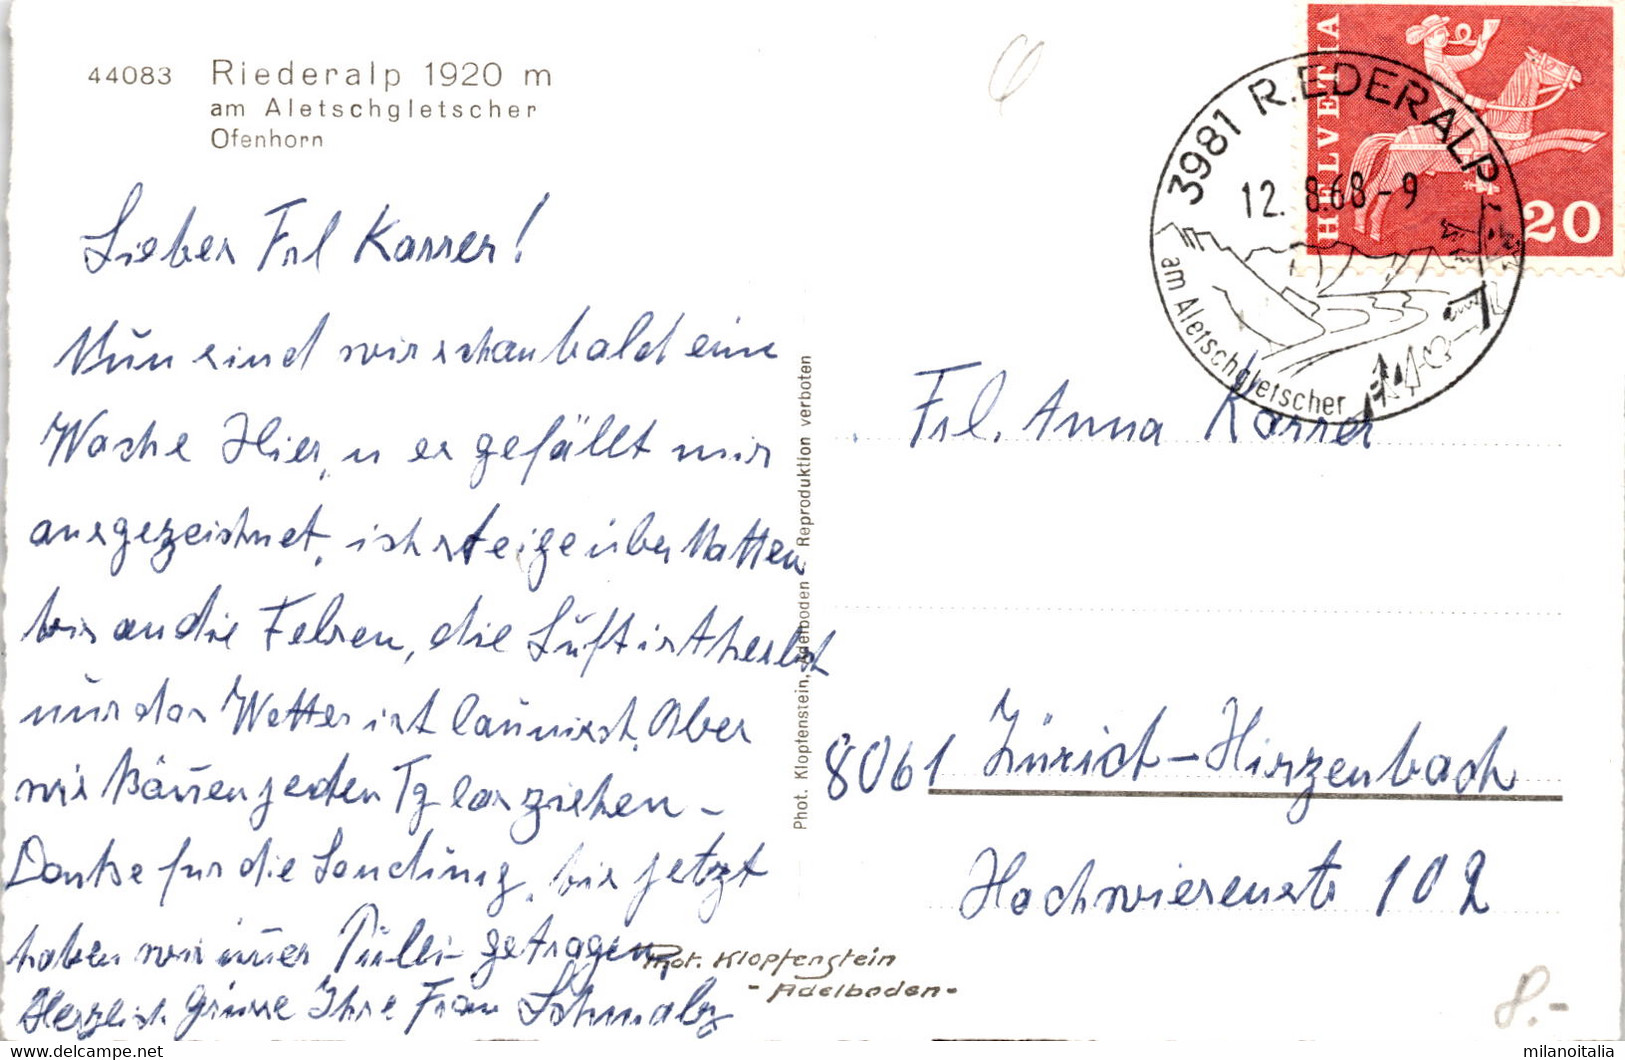 44083 Riederalp 1920 m
am Aletschgletscher
Ofenhorn
Lieber Frl Karrer!
Nun sind wir schon bald eine
Woche Hier, u es gefällt mir
ausgezeichnet, ich steige über Matten
bis an die Felsen, die Luft ist herbst
nur das Wetter ist launisch. Aber
wir können jeden Tg losziehen –
Danke für die Sendung, bis jetzt
haben wir immer Pulli getragen,
Herzlich Grüsse Ihre Frau Schmalz
Phot. Klopfenstein, Adelboden Reproduktion verboten
Phot. Klopfenstein
- Adelboden -
HELVETIA
20
3981 RIEDERALP
12. 8.68 - 9
am Aletschgletscher
Frl. Anna Karrer
8061 Zürich – Hirzenbach
Hochwiesenstr 102
8.-
delcampe.net
milanoitalia